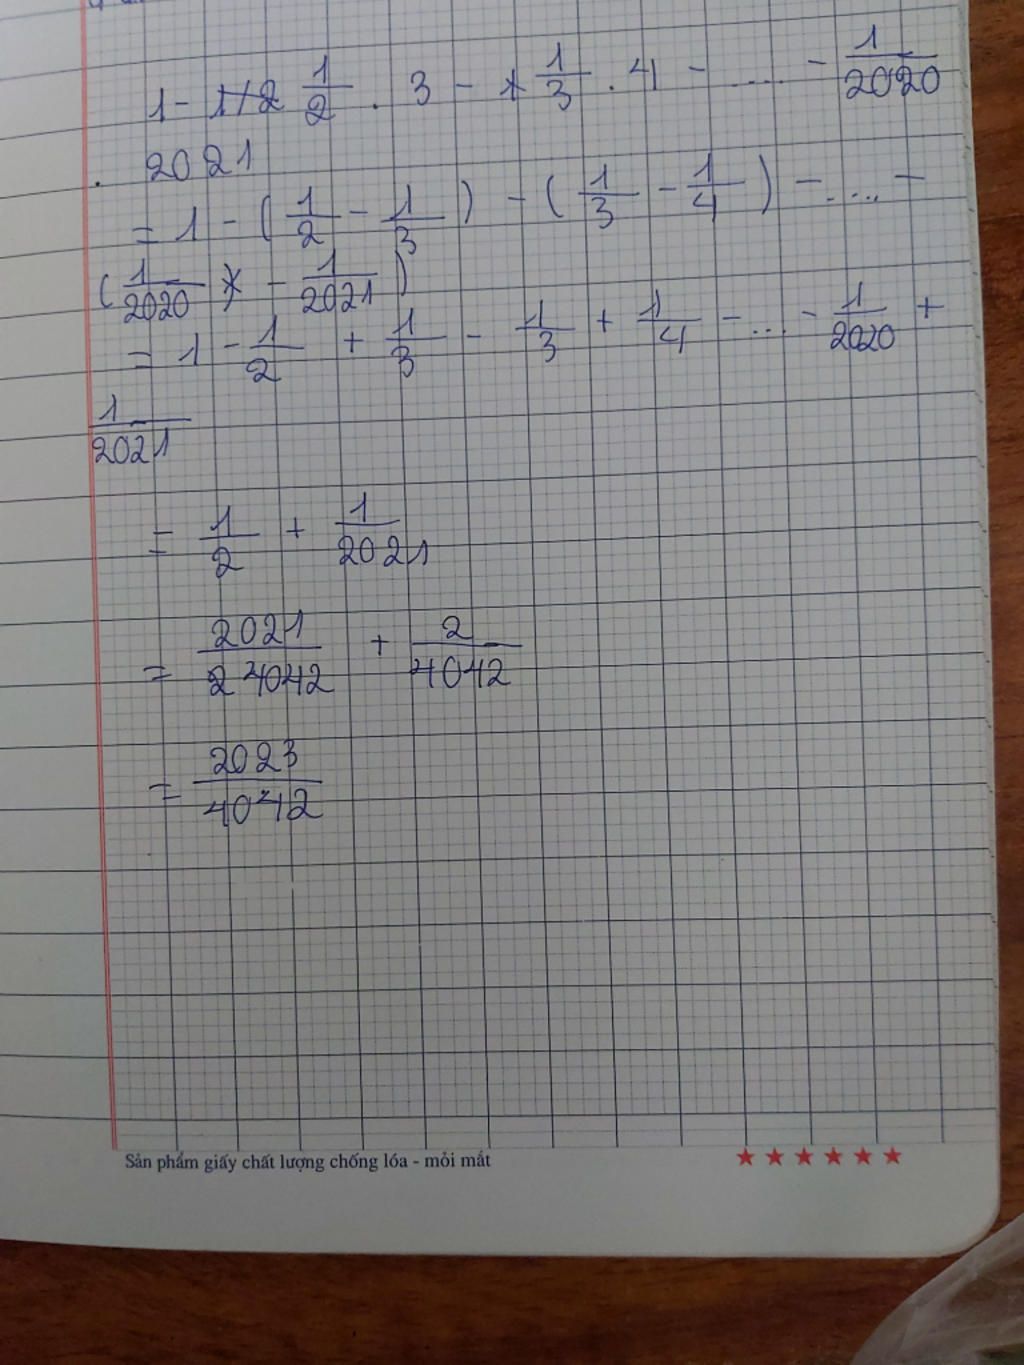 1 - 1/2 1/2 . 3 - 1/3 . 4 - .... - 1/2020
. 2021
= 1 - ( 1/2 - 1/3 ) - ( 1/3 - 1/4 ) - .... -
( 1/2020 - 1/2021 )
= 1 - 1/2 + 1/3 - 1/3 + 1/4 - ... - 1/2020 +
1/2021
= 1/2 + 1/2021
= 2021/4042 + 2/4042
= 2023/4042
Sản phẩm giấy chất lượng chống lóa - mỏi mắt